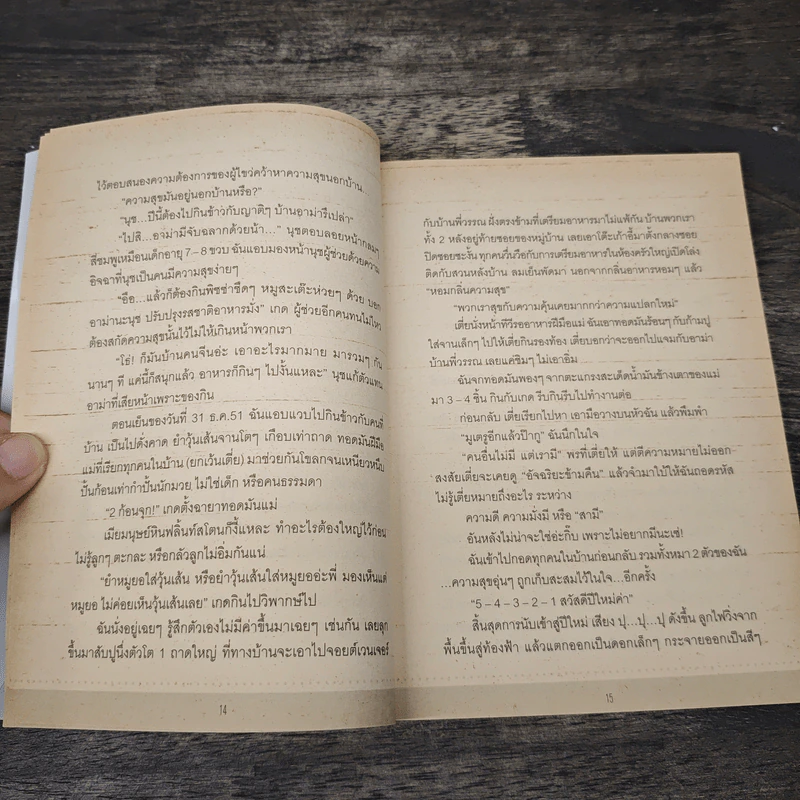 ไว้ตอบสนองความต้องการของผู้ไขว่คว้าหาความสุขนอกบ้าน
"ความสุขมันอยู่นอกบ้านหรือ?"
"นุช...ปีนี้ต้องไปกินข้าวกับญาติๆ บ้านอาม่ารึเปล่า"
"ไปสิ...อาม่ามีจับฉลากด้วยน้า..." นุชตอบลอยหน้ากลมๆ
สีชมพูเหมือนเด็กอายุ 7-8 ขวบ ฉันแอบมองหน้านุชผู้ช่วยด้วยความ
อิจฉาที่นุชเป็นคนมีความสุขง่ายๆ
"อือ...แล้วก็ต้องกินพิซซ่าซีดๆ หมูสะเต๊ะห่วยๆ ด้วย บอก
อาม่านะนุช ปรับปรุงรสชาติอาหารมั่ง" เกด ผู้ช่วยอีกคนทนไม่ไหว
ต้องสกัดความสุขนั้นไว้ไม่ให้เกินหน้าพวกเรา
"โธ่! ก็มันบ้านคนจีนอ่ะ เอาอะไรมากมาย มารวมๆ กัน
นานๆ ที แค่นี้ก็สนุกแล้ว อาหารก็กินๆ ไปงั้นแหละ" นุชแก้ตัวแทน
อาม่าที่เสียหน้าเพราะของกิน
ตอนเย็นของวันที่ 31 ธ.ค.51 ฉันแอบแวบไปกินข้าวกับคนที่
บ้าน เป็นไปดั่งคาด ยำวุ้นเส้นจานโตๆ เกือบเท่าถาด ทอดมันฝีมือ
แม่ที่เรียกทุกคนในบ้าน (ยกเว้นเตี่ย) มาช่วยกันโขลกจนเหนียวหนึบ
ปั้นก้อนเท่ากำปั้นนักมวย ไม่ใช่เด็ก หรือคนธรรมดา
"2 ก้อนจุก!" เกดตั้งฉายาทอดมันแม่
เมียมนุษย์หินฟลิ้นท์สโตนก็งี้แหละ ทำอะไรต้องใหญ่ไว้ก่อน
ไม่รู้ลูกๆ ตะกละ หรือกลัวลูกไม่อิ่มกันแน่
"ยำหมูยอใส่วุ้นเส้น หรือยำวุ้นเส้นใส่หมูยออ่ะพี่ มองเห็นแต่
หมูยอ ไม่ค่อยเห็นวุ้นเส้นเลย" เกดกินไปวิพากษ์ไป
ฉันนั่งอยู่เฉยๆ รู้สึกตัวเองไม่มีค่าขึ้นมาเฉยๆ เช่นกัน เลยลุก
ขึ้นมาสับปูนึ่งตัวโต 1 ถาดใหญ่ ที่ทางบ้านจะเอาไปจอยต์เวนเจอร์
14
กับบ้านพี่วรรณ ฝั่งตรงข้ามที่เตรียมอาหารมาไม่แพ้กัน บ้านพวกเรา
ทั้ง 2 หลังอยู่ท้ายซอยของหมู่บ้าน เลยเอาโต๊ะเก้าอี้มาตั้งกลางซอย
ปิดซอยซะงั้น ทุกคนวิ่นวือกับการเตรียมอาหารในห้องครัวใหญ่เปิดโล่ง
ติดกับสวนหลังบ้าน ลมเย็นพัดมา นอกจากกลิ่นอาหารหอมๆ แล้ว
"หอมกลิ่นความสุข"
"พวกเราสุขกับความคุ้นเคยมากกว่าความแปลกใหม่"
เตี่ยนั่งหน้าทีวีรออาหารฝีมือแม่ ฉันเอาทอดมันร้อนๆ กับก้ามปู
ใส่จานเล็กๆ ไปให้เตี่ยกินรองท้อง เตี่ยบอกว่าจะออกไปแจมกับอาม่า
บ้านพี่วรรณ เลยแค่ชิมๆ ไม่เอาอิ่ม
ฉันฉกทอดมันพองๆ จากตะแกรงสะเด็ดน้ำมันข้างเตาของแม่
มา 3-4 ชิ้น กินกับเกด รีบกินรีบไปทำงานต่อ
ก่อนกลับ เตี่ยเรียกไปหา เอามือวางบนหัวฉัน แล้วพึมพำ
"มูเตรูอีกแล้วป๊ากู" ฉันนึกในใจ
"คนอื่นไม่มี แต่เรามี" พรที่เตี่ยให้ แต่ตีความหมายไม่ออก
สงสัยเตี่ยจะเคยดู "อัจฉริยะข้ามคืน" แล้วจำมาใบ้ให้ฉันถอดรหัส
ไม่รู้เตี่ยหมายถึงอะไร ระหว่าง
ความดี ความมั่งมี หรือ "สามี"
อันหลังไม่น่าจะใช่อะกิ๊บ เพราะไม่อยากมีนะเซ่!
ฉันเข้าไปกอดทุกคนในบ้านก่อนกลับ รวมทั้งหมา 2 ตัวของฉัน
...ความสุขอุ่นๆ ถูกเก็บสะสมไว้ในใจ...อีกครั้ง
"5-4-3-2-1 สวัสดีปีใหม่ค่า"
สิ้นสุดการนับเข้าสู่ปีใหม่ เสียง ปุ...ปุ...ปุ ดังขึ้น ลูกไฟวิ่งจาก
พื้นขึ้นสู่ท้องฟ้า แล้วแตกออกเป็นดอกเล็กๆ กระจายออกเป็นสีๆ
15